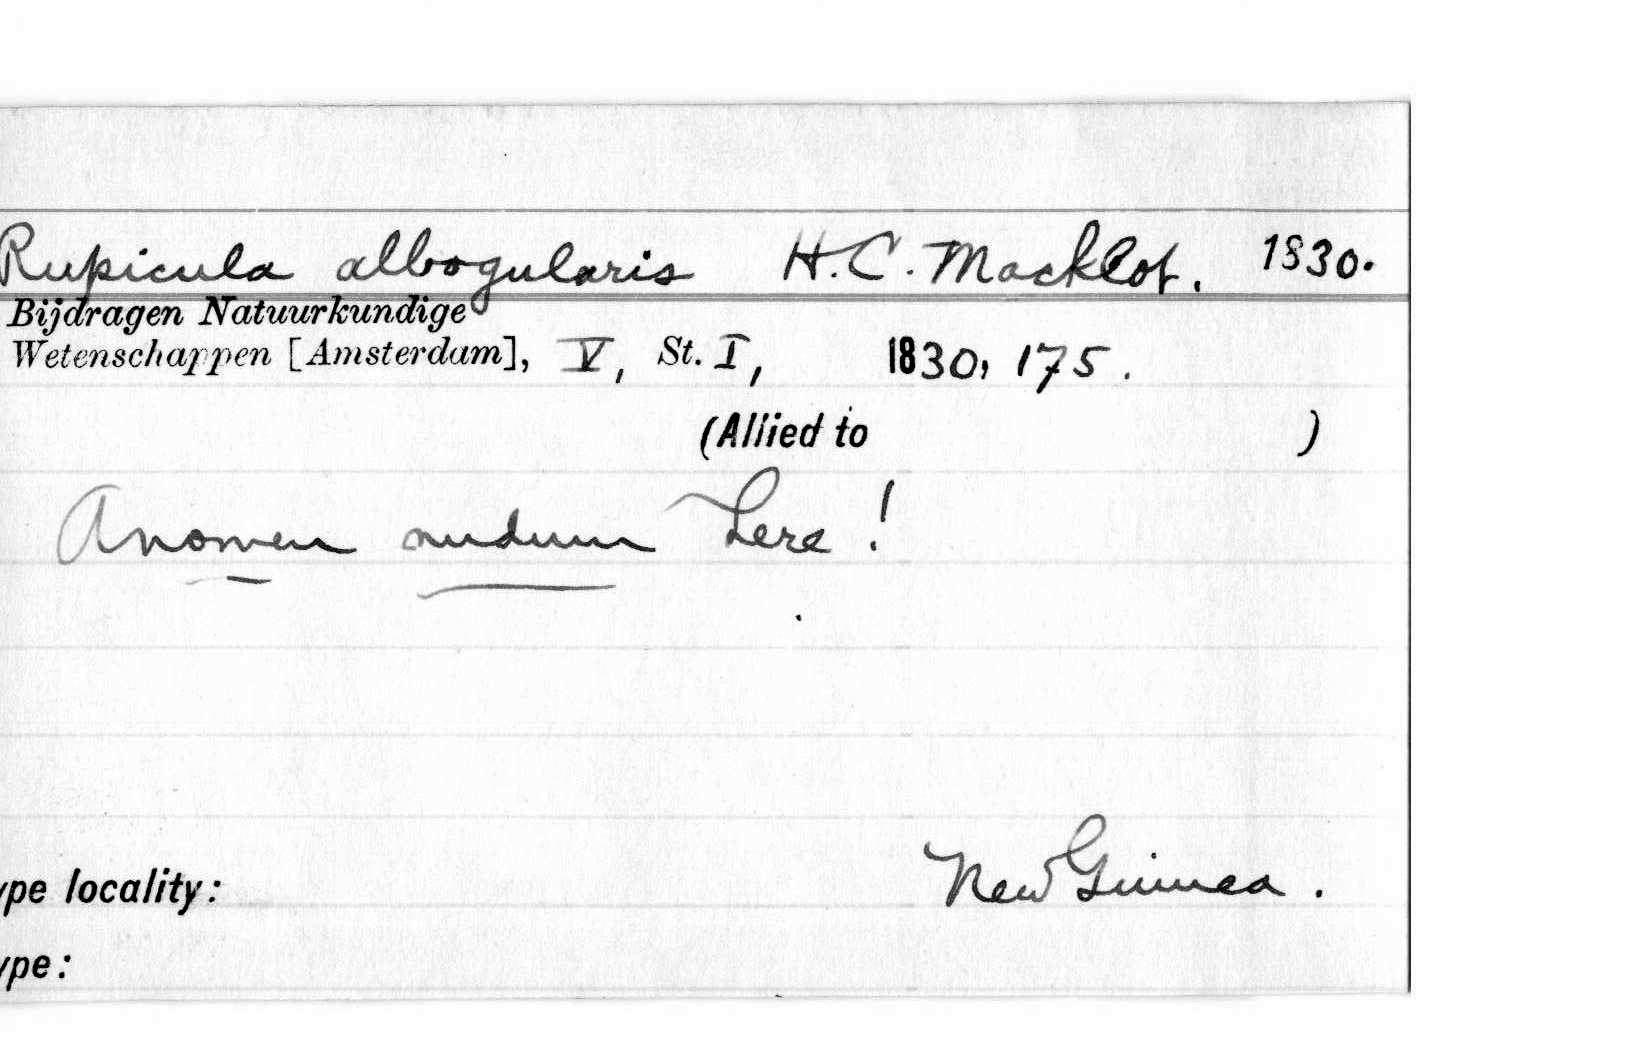 Rupicula albogularis H. C. Macklot. 1830.
Bijdragen Natuurkundige
Wetenschappen [Amsterdam], V, St. I, 1830, 175.
(Allied to )
A nomen nudum here!
ype locality: New Guinea.
ype: